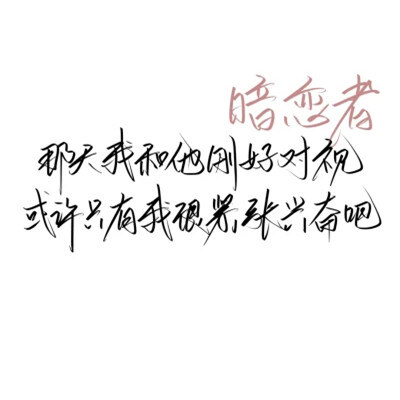 暗恋者
那天我和他刚好对视
或许只有我很紧张兴奋吧